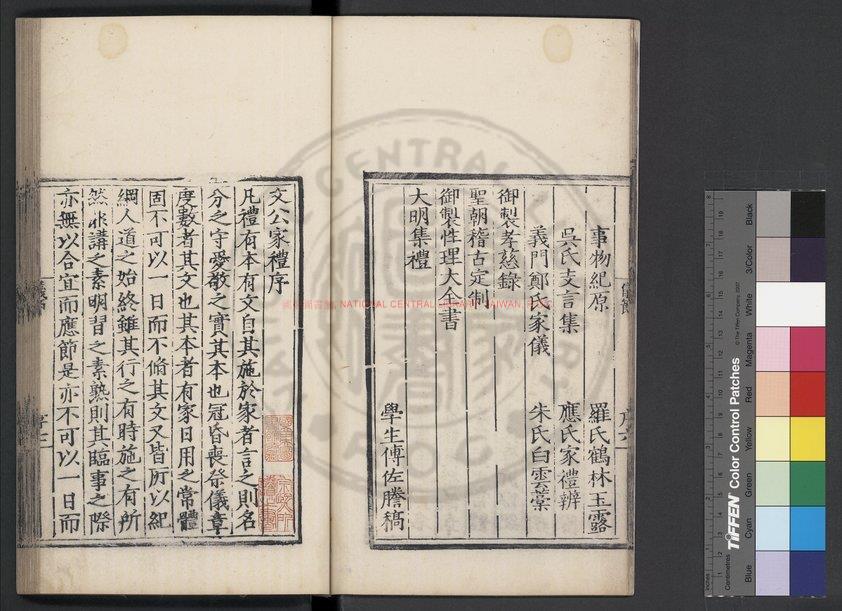 事物紀原 羅氏鶴林玉露
吳氏支言集 應氏家禮辨
義門鄭氏家儀 朱氏白雲藁
御製孝慈錄
聖朝稽古定制
御製性理大全書
大明集禮
學生傅佐謄稿
文公家禮序
凡禮有本有文自其施於家者言之則名
分之守愛敬之實其本也冠昏喪祭儀章
度數者其文也其本者有家日用之常體
固不可以一日而不脩其文又皆所以紀
綱人道之始終雖其行之有時施之有所
然非講之素明習之素熟則其臨事之際
亦無以合宜而應節是亦不可以一日而
國家圖書館, NATIONAL CENTRAL LIBRARY, TAIWAN
TIFFEN Color Control Patches
© The Tiffen Company, 2007
Centimetres
Inches
Blue
Cyan
Green
Yellow
Red
Magenta
White
3/Color
Black